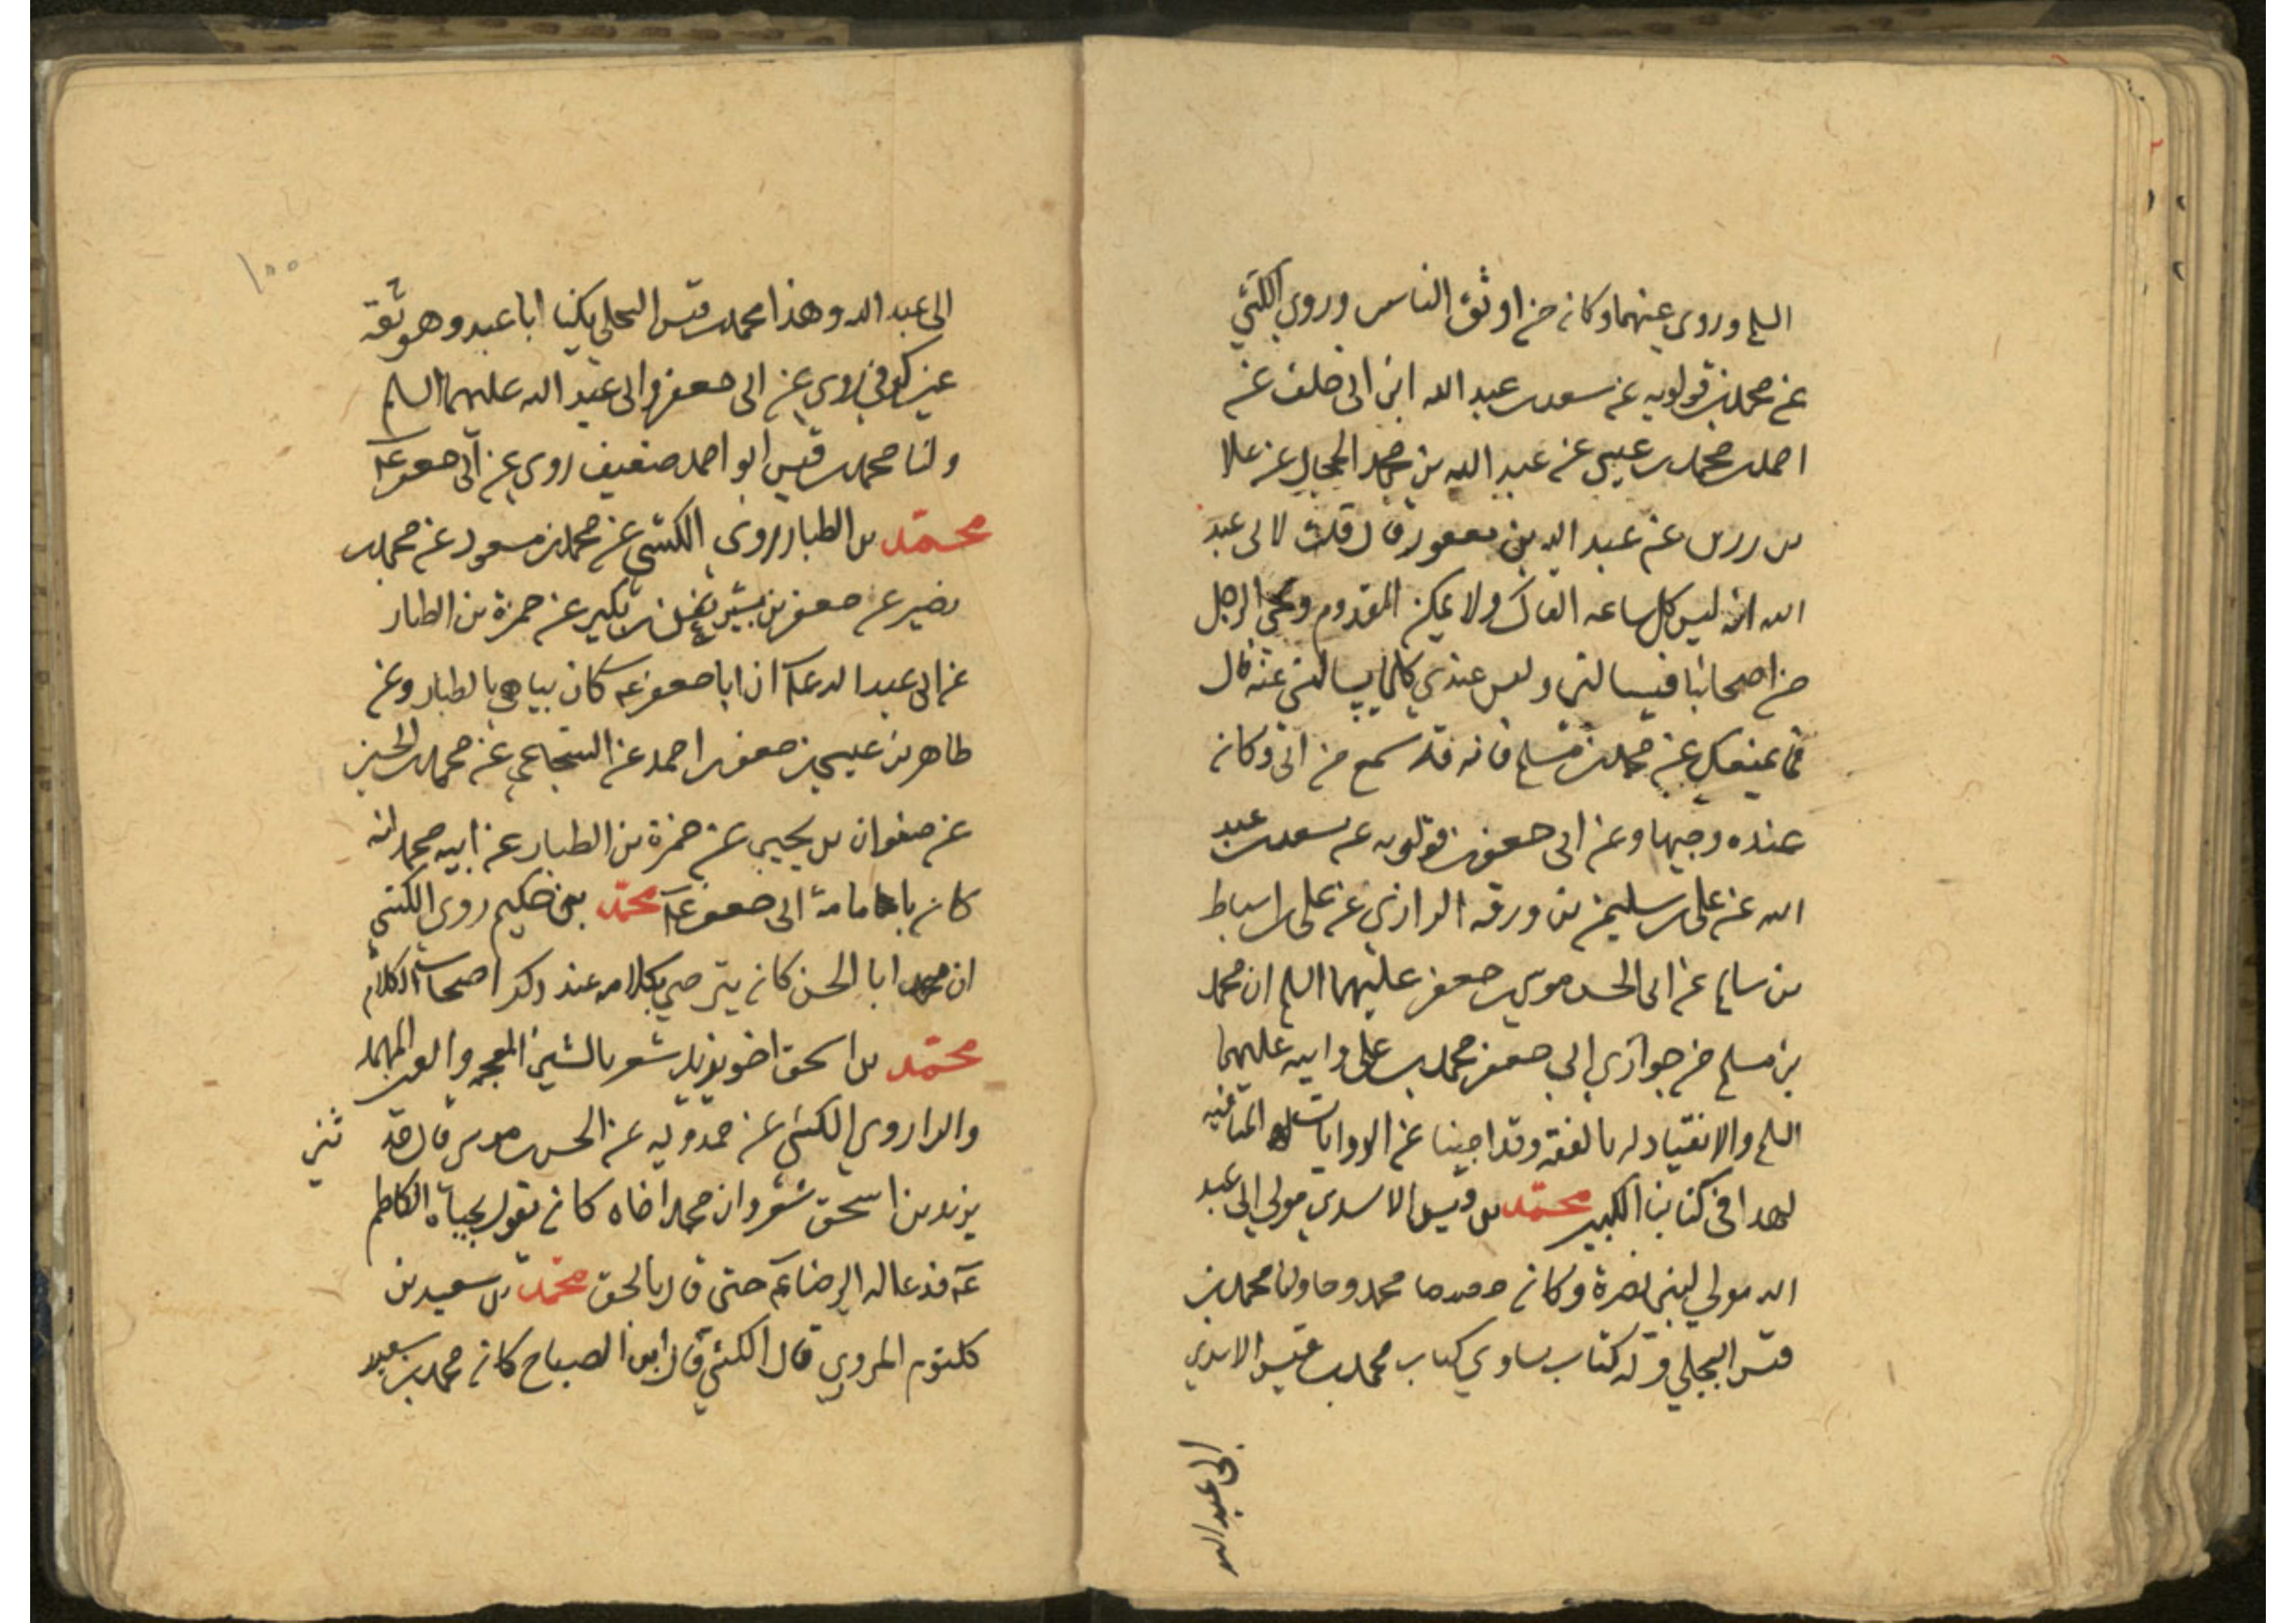 السلم وروى عنهما وكان من اوثق الناس وروى الكشي
عن محمد بن قولويه عن سعد بن عبد الله ابن ابى خلف عن
احمد بن محمد بن عيسى عن عبد الله بن محمد الحجال عن علا
بن رزين عن عبد الله بن يعفور قال قلت لابى عبد
الله انه ليس كل ساعه القاك ولا يمكن القدوم ويجي الرجل
من اصحابنا فيسالنى وليس عندى كلما يسالنى عنه قال
فما يمنعك عن محمد بن مسلم فانه قد سمع من ابى وكان
عنده وجيها وعن ابى جعفر بن قولويه عن سعد بن عبد
الله عن على بن سليمن بن ورقه الرازى عن على بن اسباط
بن سالم عن ابى الحسن موسى بن جعفر عليهما السلم ان محمد
بن مسلم من حوارى ابى جعفر محمد بن على وابيه عليهما
السلم والانقياد له بالفقه وقد اجبنا عن الروايات المنافيه
لهذا فى كتابنا الكبير محمد بن قيس الاسدى مولى ابى عبد
الله مولى لبنى نصرة وكان ممدوحا ولنا محمد بن
قيس البجلى وله كتاب يساوى كتاب محمد بن قيس الاسدى
ابى عبد الله
١٥٥
ابى عبد الله وهذا محمد بن قيس البجلى يكنا ابا عبد وهو ثقه
عين كوفى روى عن ابى جعفر وابى عبد الله عليهما السلم
ولنا محمد بن قيس ابو احمد ضعيف روى عن ابى جعفر ع
محمد بن الطيار روى الكشى عن محمد بن مسعود عن محمد بن
نصير عن جعفر بن بشير عن بن بكير عن حمزة بن الطيار
عن ابى عبد الله ع ان ابا جعفر ع كان يباهى بالطيار وعن
طاهر بن عيسى بن جعفر بن احمد عن الشجاعى عن محمد بن الحسين
عن صفوان بن يحيى عن حمزة بن الطيار عن ابيه محمد انه
كان بامامة ابى جعفر ع محمد بن حكيم روى الكشى
ان ابا الحسن كان يترضى بكلامه عند ذكر اصحاب الكلام
محمد بن اسحق اخو يزيد شعر بالشين المعجمه والعين المهمله
والرا روى الكشى عن حمدويه عن الحسن بن موسى قال حد
ثنى
يزيد بن اسحق شعر وان محمد اخاه كان يقول بحياة الكاظم
ع فدعا له الرضا ع حتى قال بالحق محمد بن سعيد بن
كلثوم المروى قال الكشى قال ابن الصباح كان محمد بن سعيد